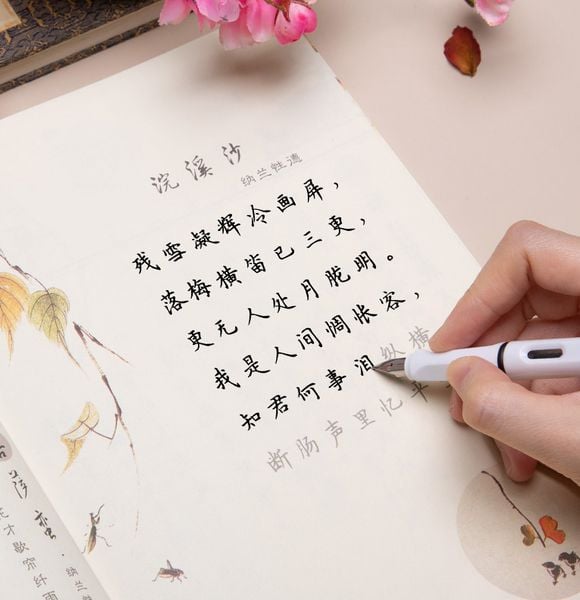 浣溪沙
纳兰性德
残雪凝辉冷画屏，
落梅横笛已三更，
更无人处月胧明。
我是人间惆怅客，
知君何事泪纵横
断肠声里忆平
萨蛮·纳兰
才歇帘纤雨